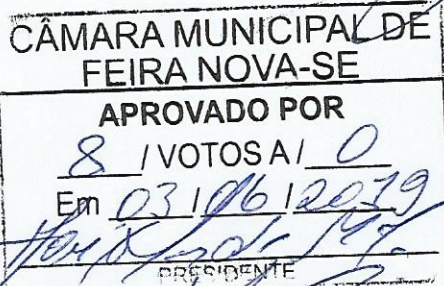 CÂMARA MUNICIPAL DE
FEIRA NOVA-SE
APROVADO POR
8 / VOTOS A / 0
Em 03 / 06 / 2019
PRESIDENTE